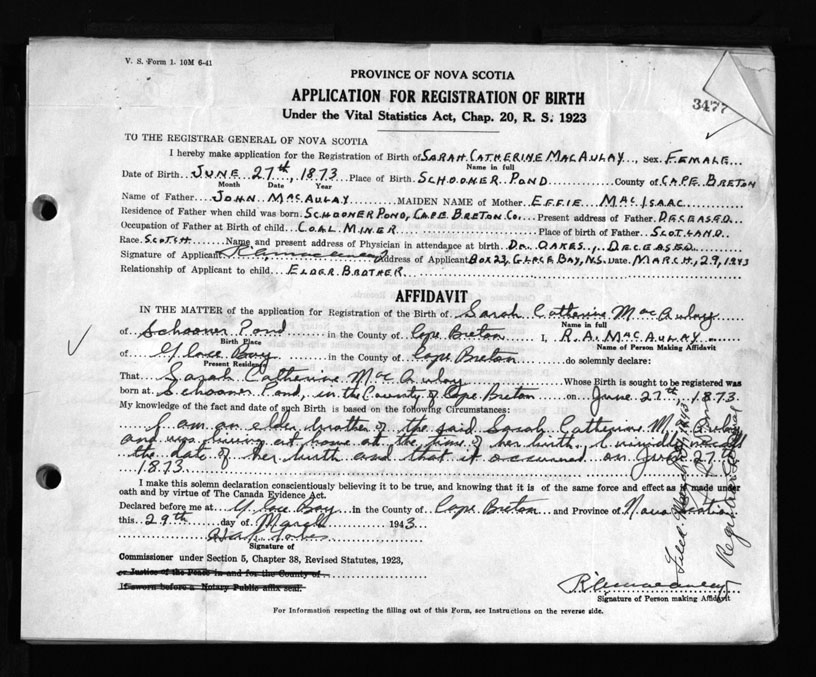 V. S. Form 1. 10M 6-41
PROVINCE OF NOVA SCOTIA
3477
APPLICATION FOR REGISTRATION OF BIRTH
Under the Vital Statistics Act, Chap. 20, R. S. 1923
TO THE REGISTRAR GENERAL OF NOVA SCOTIA
I hereby make application for the Registration of Birth of SARAH CATHERINE MACAULAY, Sex FEMALE
Name in full
Date of Birth JUNE 27th, 1873 Place of Birth SCHOONER POND County of CAPE BRETON
Month Date Year
Name of Father JOHN MACAULAY MAIDEN NAME of Mother EFFIE MACISAAC
Residence of Father when child was born SCHOONER POND, CAPE BRETON CO. Present address of Father DECEASED
Occupation of Father at Birth of child COAL MINER Place of birth of Father SCOTLAND
Race SCOTCH Name and present address of Physician in attendance at birth DR. OAKES, DECEASED
Signature of Applicant R A Macaulay Address of Applicant BOX 23, GLACE BAY, N.S. Date MARCH, 29, 1943
Relationship of Applicant to child ELDER BROTHER
AFFIDAVIT
IN THE MATTER of the application for Registration of the Birth of Sarah Catherine MacAulay
Name in full
of Schooner Pond in the County of Cape Breton I, R. A. MACAULAY
Birth Place Name of Person Making Affidavit
of Glace Bay in the County of Cape Breton do solemnly declare:
Present Residence
That Sarah Catherine MacAulay Whose Birth is sought to be registered was
born at Schooner Pond, in the County of Cape Breton on June 27th, 1873.
My knowledge of the fact and date of such Birth is based on the following Circumstances:
I am an elder brother of the said Sarah Catherine MacAulay
and was living at home at the time of her birth. I vividly recall
the date of her birth and that it occurred on June 27th
1873.
I make this solemn declaration conscientiously believing it to be true, and knowing that it is of the same force and effect as if made under
oath and by virtue of The Canada Evidence Act.
Declared before me at Glace Bay in the County of Cape Breton and Province of Nova Scotia
this 29th day of March 1943
Signature of
Commissioner under Section 5, Chapter 38, Revised Statutes, 1923,
or Justice of the Peace in and for the County of
If sworn before a Notary Public affix seal.
R A Macaulay
Signature of Person making Affidavit
For Information respecting the filling out of this Form, see Instructions on the reverse side.
Registrar General